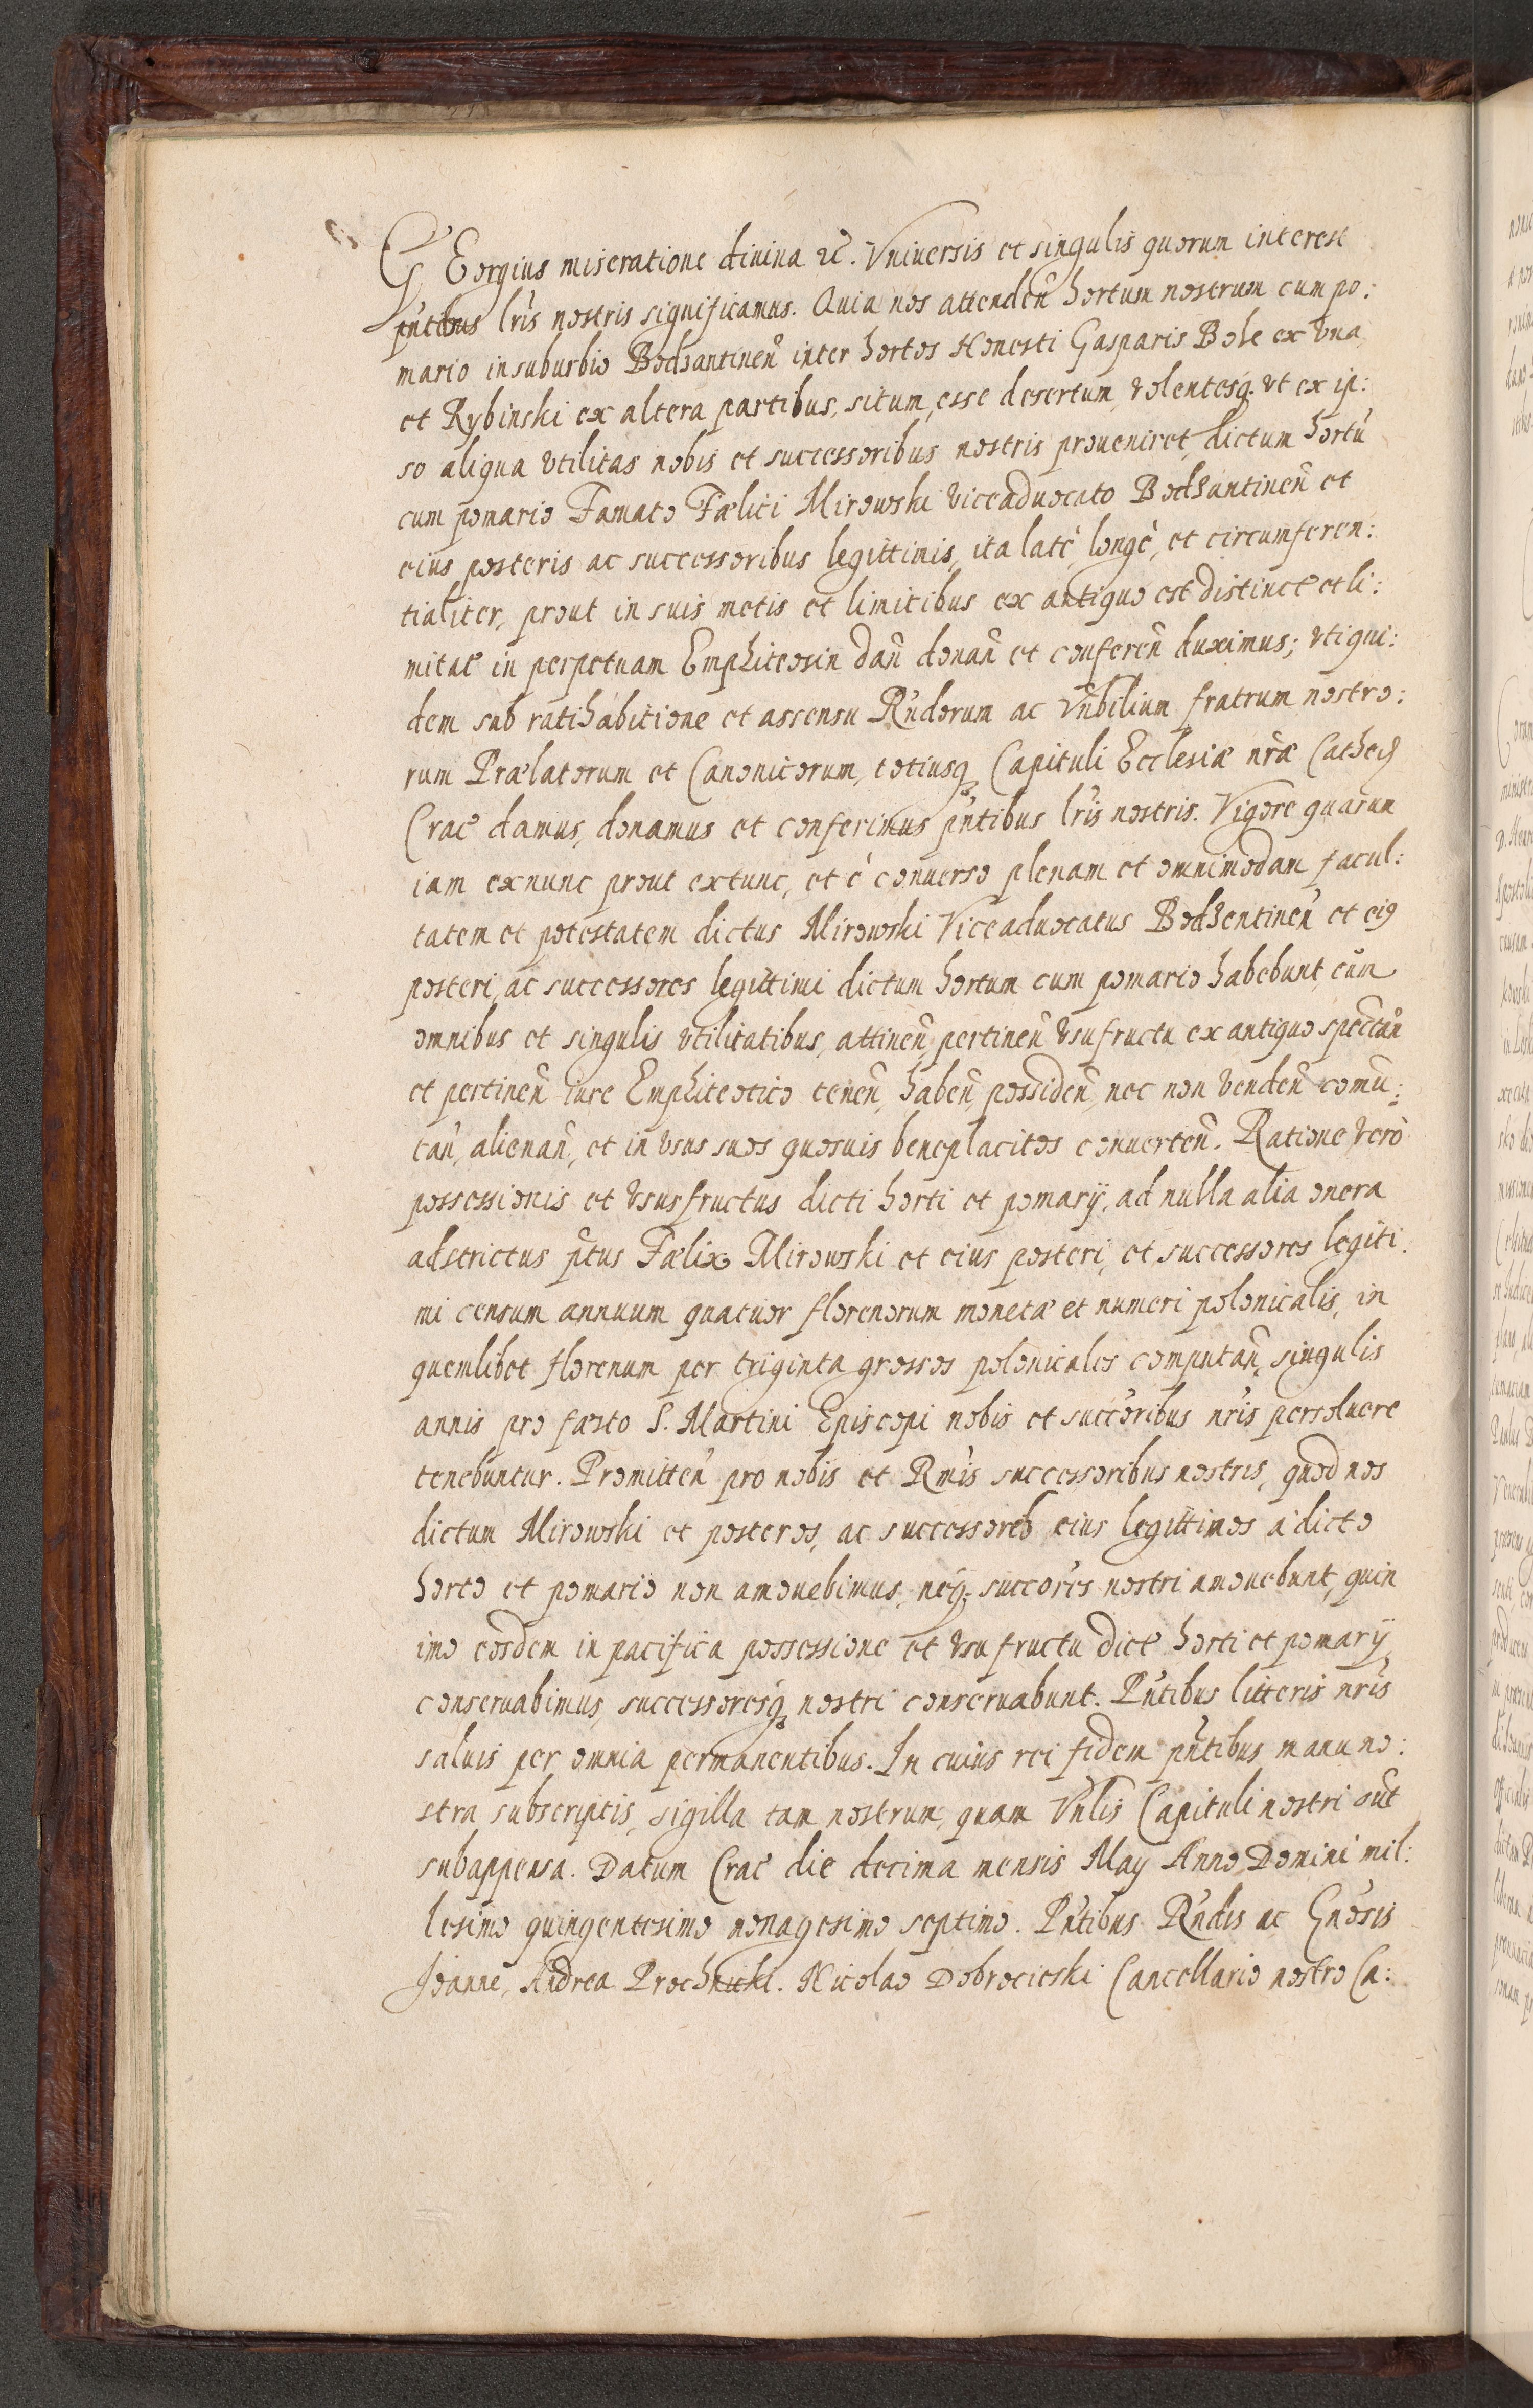 GEorgius miseratione diuina etc̃. Vniuersis et singulis quorum interest
pñtibus lr̃is nostris significamus. Quia nos attendeñ hortum nostrum cum po:
mario in suburbio Bodzantineñ inter hortos Honesti Gasparis Bole ex vna
et Rybinski ex altera partibus, situm, esse desertum, volentesq; vt ex ip:
so aliqua vtilitas nobis et successoribus nostris proueniret, dictum hortũ
cum pomario Famato Fælici Mirowski viceaduocato Bodzantineñ et
eius posteris ac successoribus legittimis, ita latè, longè, et circumferen:
tialiter, prout in suis metis et limitibus ex antiquo est distincť et li:
mitať in perpetuam Emphiteosin dañ donañ et confereñ duximus; vti qui:
dem sub ratihabitione et assensu Rñdorum ac Vñbilium fratrum nostro:
rum Prælatorum et Canonicorum, totiusq; Capituli Ecclesiæ nr̃æ Cathed
Crac̃ damus, donamus et conferimus pñtibus lr̃is nostris. Vigore quarum
iam exnunc prout extunc, et è conuerso plenam et omnimodam facul:
tatem et potestatem dictus Mirowski Viceaduocatus Bodzentineñ et ei9
posteri, ac successores legittimi dictum hortum cum pomario habebunt, cũm
omnibus et singulis vtilitatibus, attineñ, pertineñ vsufructu ex antiquo spectañ
et pertineñ iure Emphiteotico teneñ, habeñ, possideñ, nec non vendeñ comũ:
tañ, alienañ, et in vsus suos quosuis beneplacitos conuerteñ. Ratione verò
possessionis et vsusfructus dicti horti et pomarÿ, ad nulla alia onera
adstrictus p̃tus Fælix Mirowski et eius posteri, et successores legiti:
mi censum annuum quatuor florenorum monetæ et numeri polonicalis, in
quemlibet florenum per triginta grossos polonicales computañ, singulis
annis pro fæsto S. Martini Episcopi nobis et succ̃oribus nr̃is persoluere
tenebuntur. Promitteñ pro nobis et Rm̃is successoribus nostris, quod nos
dictum Mirowski et posteros, ac successores eius legittimos à dicto
horto et pomario non amouebimus, neq; succores nostri amouebunt, quin
imo eosdem in pacifica possessione et vsufructu dicť horti et pomarÿ
conseruabimus, successoresq; nostri conseruabunt. Pñtibus litteris nr̃is
saluis per omnia permanentibus. In cuius rei fidem pñtibus manu no:
stra subscriptis, sigilla tam nostrum, quam Vñlis Capituli nostri sũt
subappensa. Datum Crac̃ die decima mensis May Anno Domini mil:
lesimo quingentesimo nonagesimo septimo. Pñtibus Rñdis ac Gñosis
Joanne, Andrea Prochnicki. Nicolao Dobrocieski Cancellario nostro Ca: